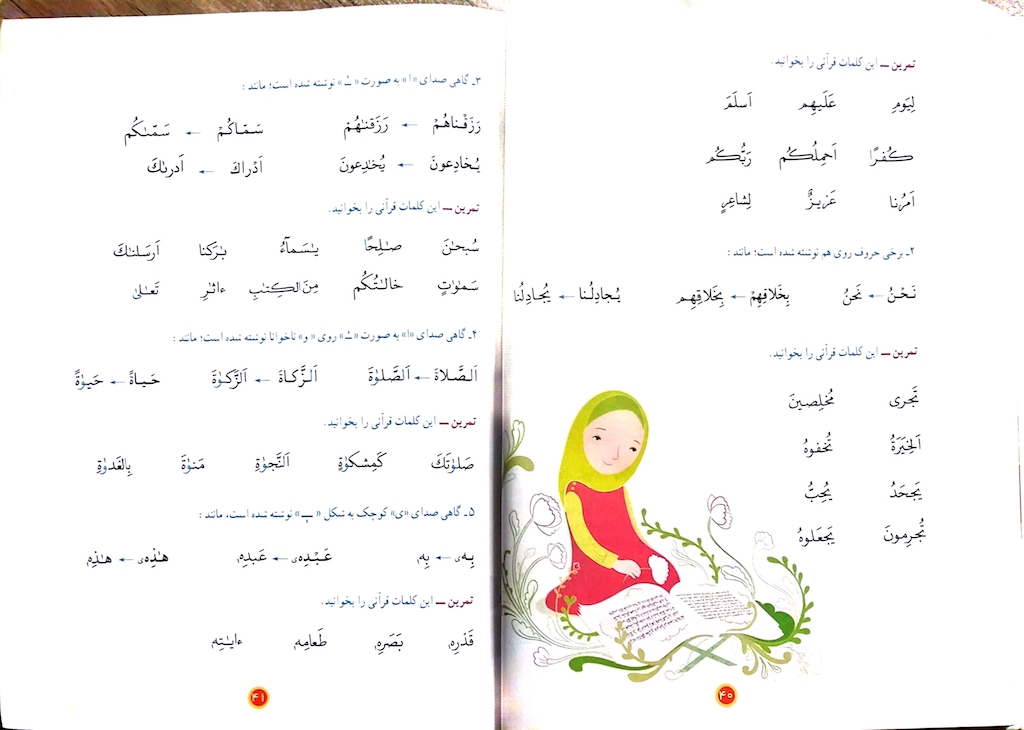 تمرین ــ این کلمات قرآنی را بخوانید.
لِیَومِ عَلَیهِم اَسلَمَ
کُفرًا اَحمِلُکُم رَبُّکُم
اَمرُنا عَزیزٌ لِشاعِرٍ
۲ـ برخی حروف روی هم نوشته شده است؛ مانند :
نَحْنُ ← نَحنُ بِخَلاقِهِمْ ← بِخَلاقِهِم یُجادِلُنا ← یُجادِلُنا
تمرین ــ این کلمات قرآنی را بخوانید.
تَجری مُخلِصینَ
اَلخِیَرَةُ تُخفوهُ
یَجحَدُ یُحِبُّ
تُجرِمونَ یَجعَلوهُ
۴۰
۳ـ گاهی صدای «ا» به صورت «ـٰ» نوشته شده است؛ مانند :
رَزَقْناهُمْ ← رَزَقنٰهُمْ سَمّاکُمْ ← سَمّىٰکُم
یُخادِعونَ ← یُخٰدِعونَ اَدْراكَ ← اَدرىٰكَ
تمرین ــ این کلمات قرآنی را بخوانید.
سُبحٰنَ صٰلِحًا یٰسَمآءُ بٰرَکنا اَرسَلنٰكَ
سَمٰوٰتٍ خالٰتُکُم مِنَ الکِتٰبِ ءاثٰرِ تَعالىٰ
۴ـ گاهی صدای «ا» به صورت «ـٰ» روی «و» ناخوانا نوشته شده است؛ مانند :
اَلصَّلاةَ ← اَلصَّلوٰةَ اَلزَّکاةَ ← اَلزَّکوٰةَ حَیاةً ← حَیوٰةً
تمرین ــ این کلمات قرآنی را بخوانید.
صَلوٰتَكَ کَمِشکوٰةٍ اَلنَّجوٰةِ مَنوٰةَ بِالغَدوٰةِ
۵ ـ گاهی صدای «ی» کوچک به شکل «ــٖ» نوشته شده است، مانند :
بِهی ← بِهٖ عَبْدِهی ← عَبدِهٖ هٰذِهی ← هٰذِهٖ
تمرین ــ این کلمات قرآنی را بخوانید.
قَدَرِهٖ بَصَرِهٖ طَعامِهٖ ءایٰتِهٖ
۴۱